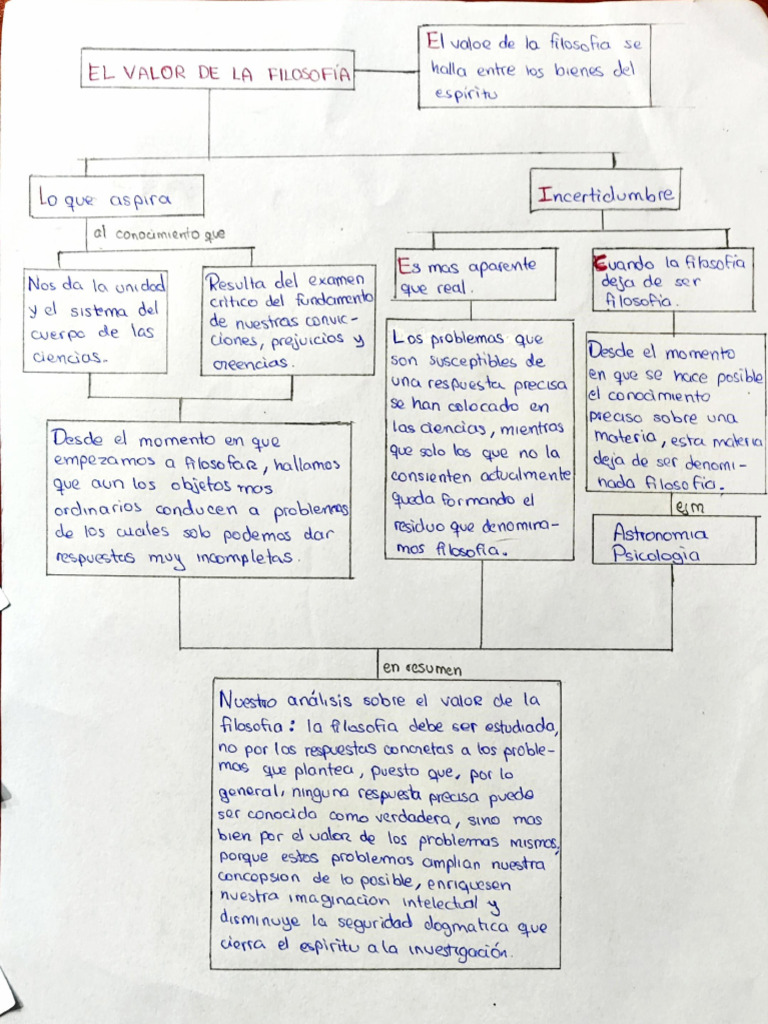 EL VALOR DE LA FILOSOFÍA
El valor de la filosofia se
halla entre los bienes del
espíritu
Lo que aspira
al conocimiento que
Nos da la unidad
y el sistema del
cuerpo de las
ciencias.
Resulta del examen
critico del fundamento
de nuestras convic-
ciones, prejuicios y
creencias.
Desde el momento en que
empezamos a filosofar, hallamos
que aun los objetos mas
ordinarios conducen a problemas
de los cuales solo podemos dar
respuestas muy incompletas.
Incertidumbre
Es mas aparente
que real.
Los problemas que
son susceptibles de
una respuesta precisa
se han colocado en
las ciencias, mientras
que solo los que no la
consienten actualmente
queda formando el
residuo que denomina-
mos filosofia.
Cuando la filosofia
deja de ser
filosofia.
Desde el momento
en que se hace posible
el conocimiento
preciso sobre una
materia, esta materia
deja de ser denomi-
nada filosofia.
ejm
Astronomia
Psicologia
en resumen
Nuestro análisis sobre el valor de la
filosofia: la filosofia debe ser estudiada,
no por las respuestas concretas a los proble-
mas que plantea, puesto que, por lo
general, ninguna respuesta precisa puede
ser conocida como verdadera, sino mas
bien por el valor de los problemas mismos,
porque estos problemas amplian nuestra
concepsion de lo posible, enriquesen
nuestra imaginacion intelectual y
disminuye la seguridad dogmatica que
cierra el espiritu a la investigación.